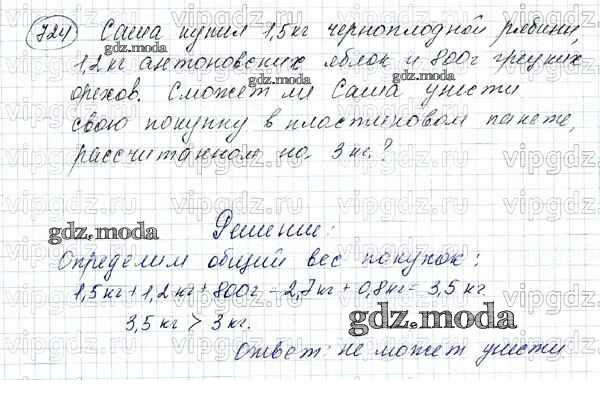 724 Саша купил 1,5кг черноплодной рябины,
1,2кг антоновских яблок и 800г грецких
орехов. Сможет ли Саша унести
свою покупку в пластиковом пакете,
рассчитанном на 3 кг.?
Решение:
Определим общий вес покупок:
1,5кг + 1,2кг + 800г = 2,7кг + 0,8кг = 3,5 кг
3,5 кг > 3 кг.
Ответ: не может унести
gdz.moda
gdz.moda
gdz.moda
gdz.moda
gdz.moda
vipgdz.ru